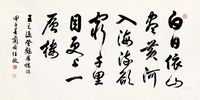 白日依山
盡黄河
入海流欲
窮千里
目更上一
層樓
王之涣登鹳雀楼
甲午